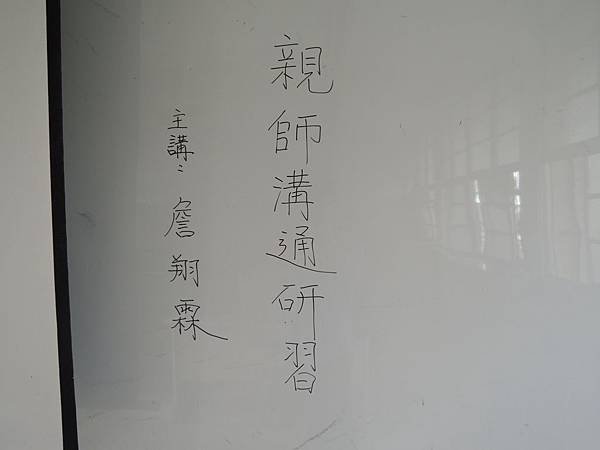 親師溝通研習
主講：詹翔霖